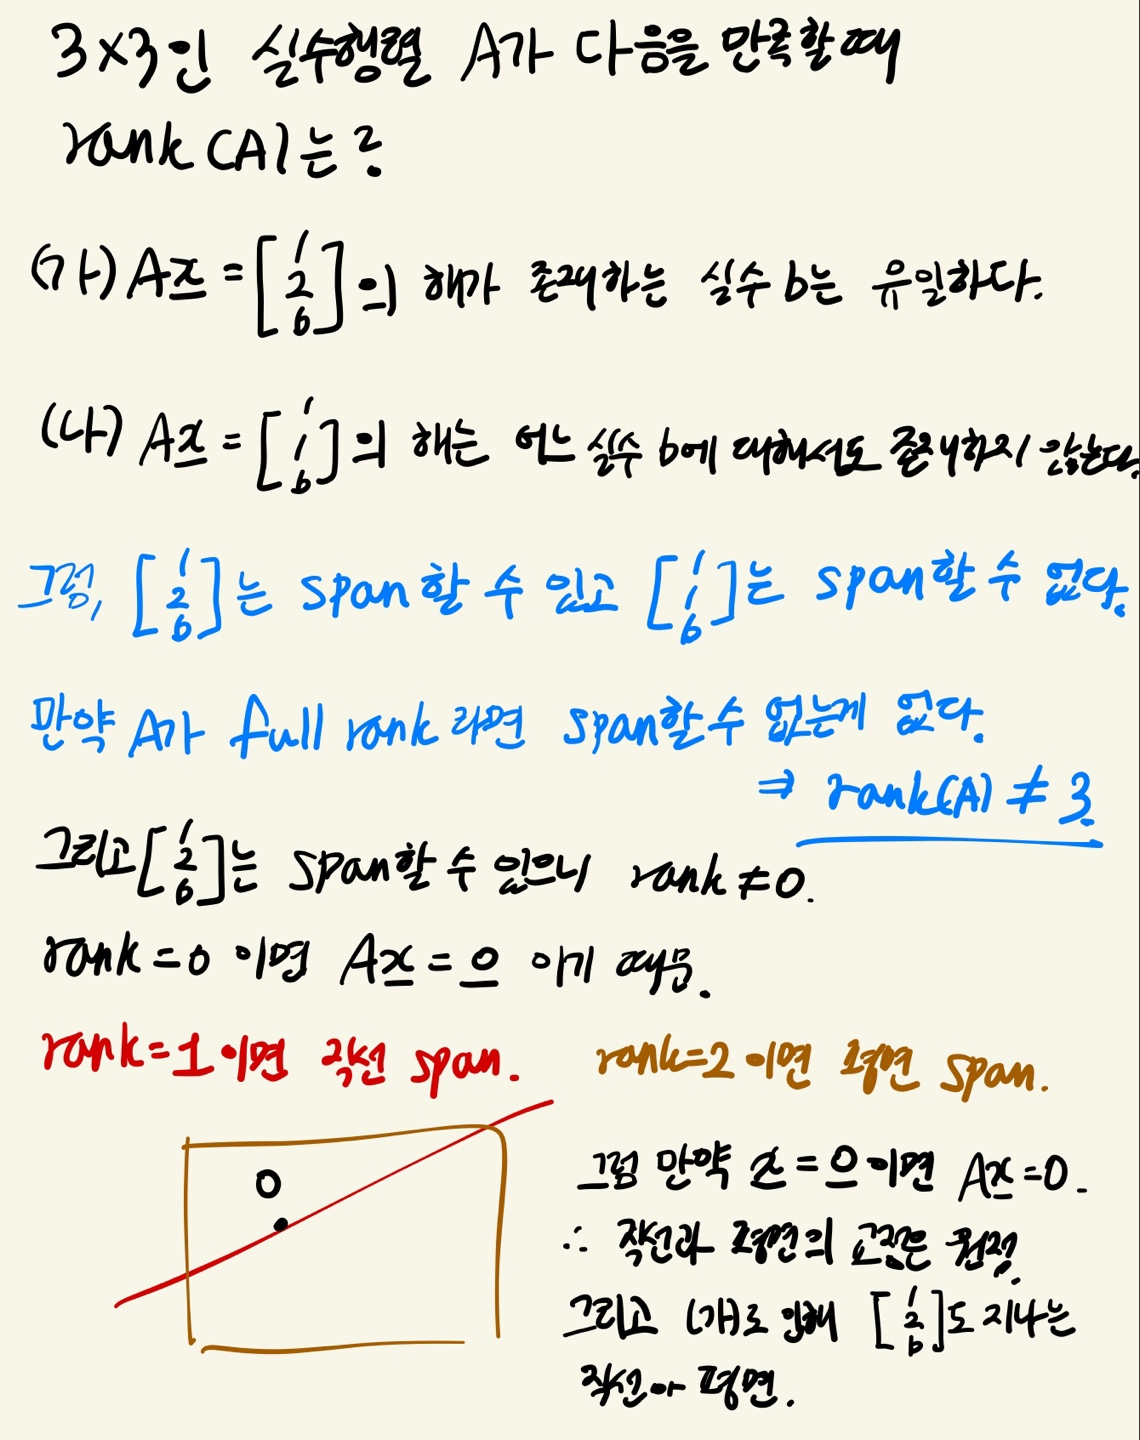 3×3인 실수행렬 A가 다음을 만족할 때
rank(A)는?
(가) Ax = [1 2 b]의 해가 존재하는 실수 b는 유일하다.
(나) Ax = [1 1 b]의 해는 어느 실수 b에 대해서도 존재하지 않는다.
그럼, [1 2 b]는 span할 수 있고 [1 1 b]는 span할 수 없다.
만약 A가 full rank라면 span할 수 없는게 없다.
⇒ rank(A) ≠ 3.
그리고 [1 2 b]는 span할 수 있으니 rank ≠ 0.
rank = 0 이면 Ax = 0 이기 때문.
rank = 1 이면 직선 span.
rank=2 이면 평면 span.
0
그럼 만약 x = 0 이면 Ax = 0.
∴ 직선과 평면의 교점은 원점.
그리고 (가)로 인해 [1 2 b]도 지나는
직선아 평면.